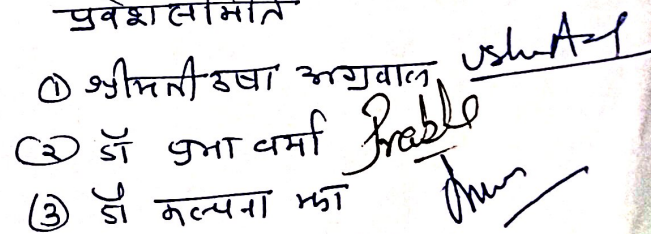 प्रवेश समिति
① श्रीमती उषा अग्रवाल
② डॉ प्रभा वर्मा
③ डॉ कल्पना झा